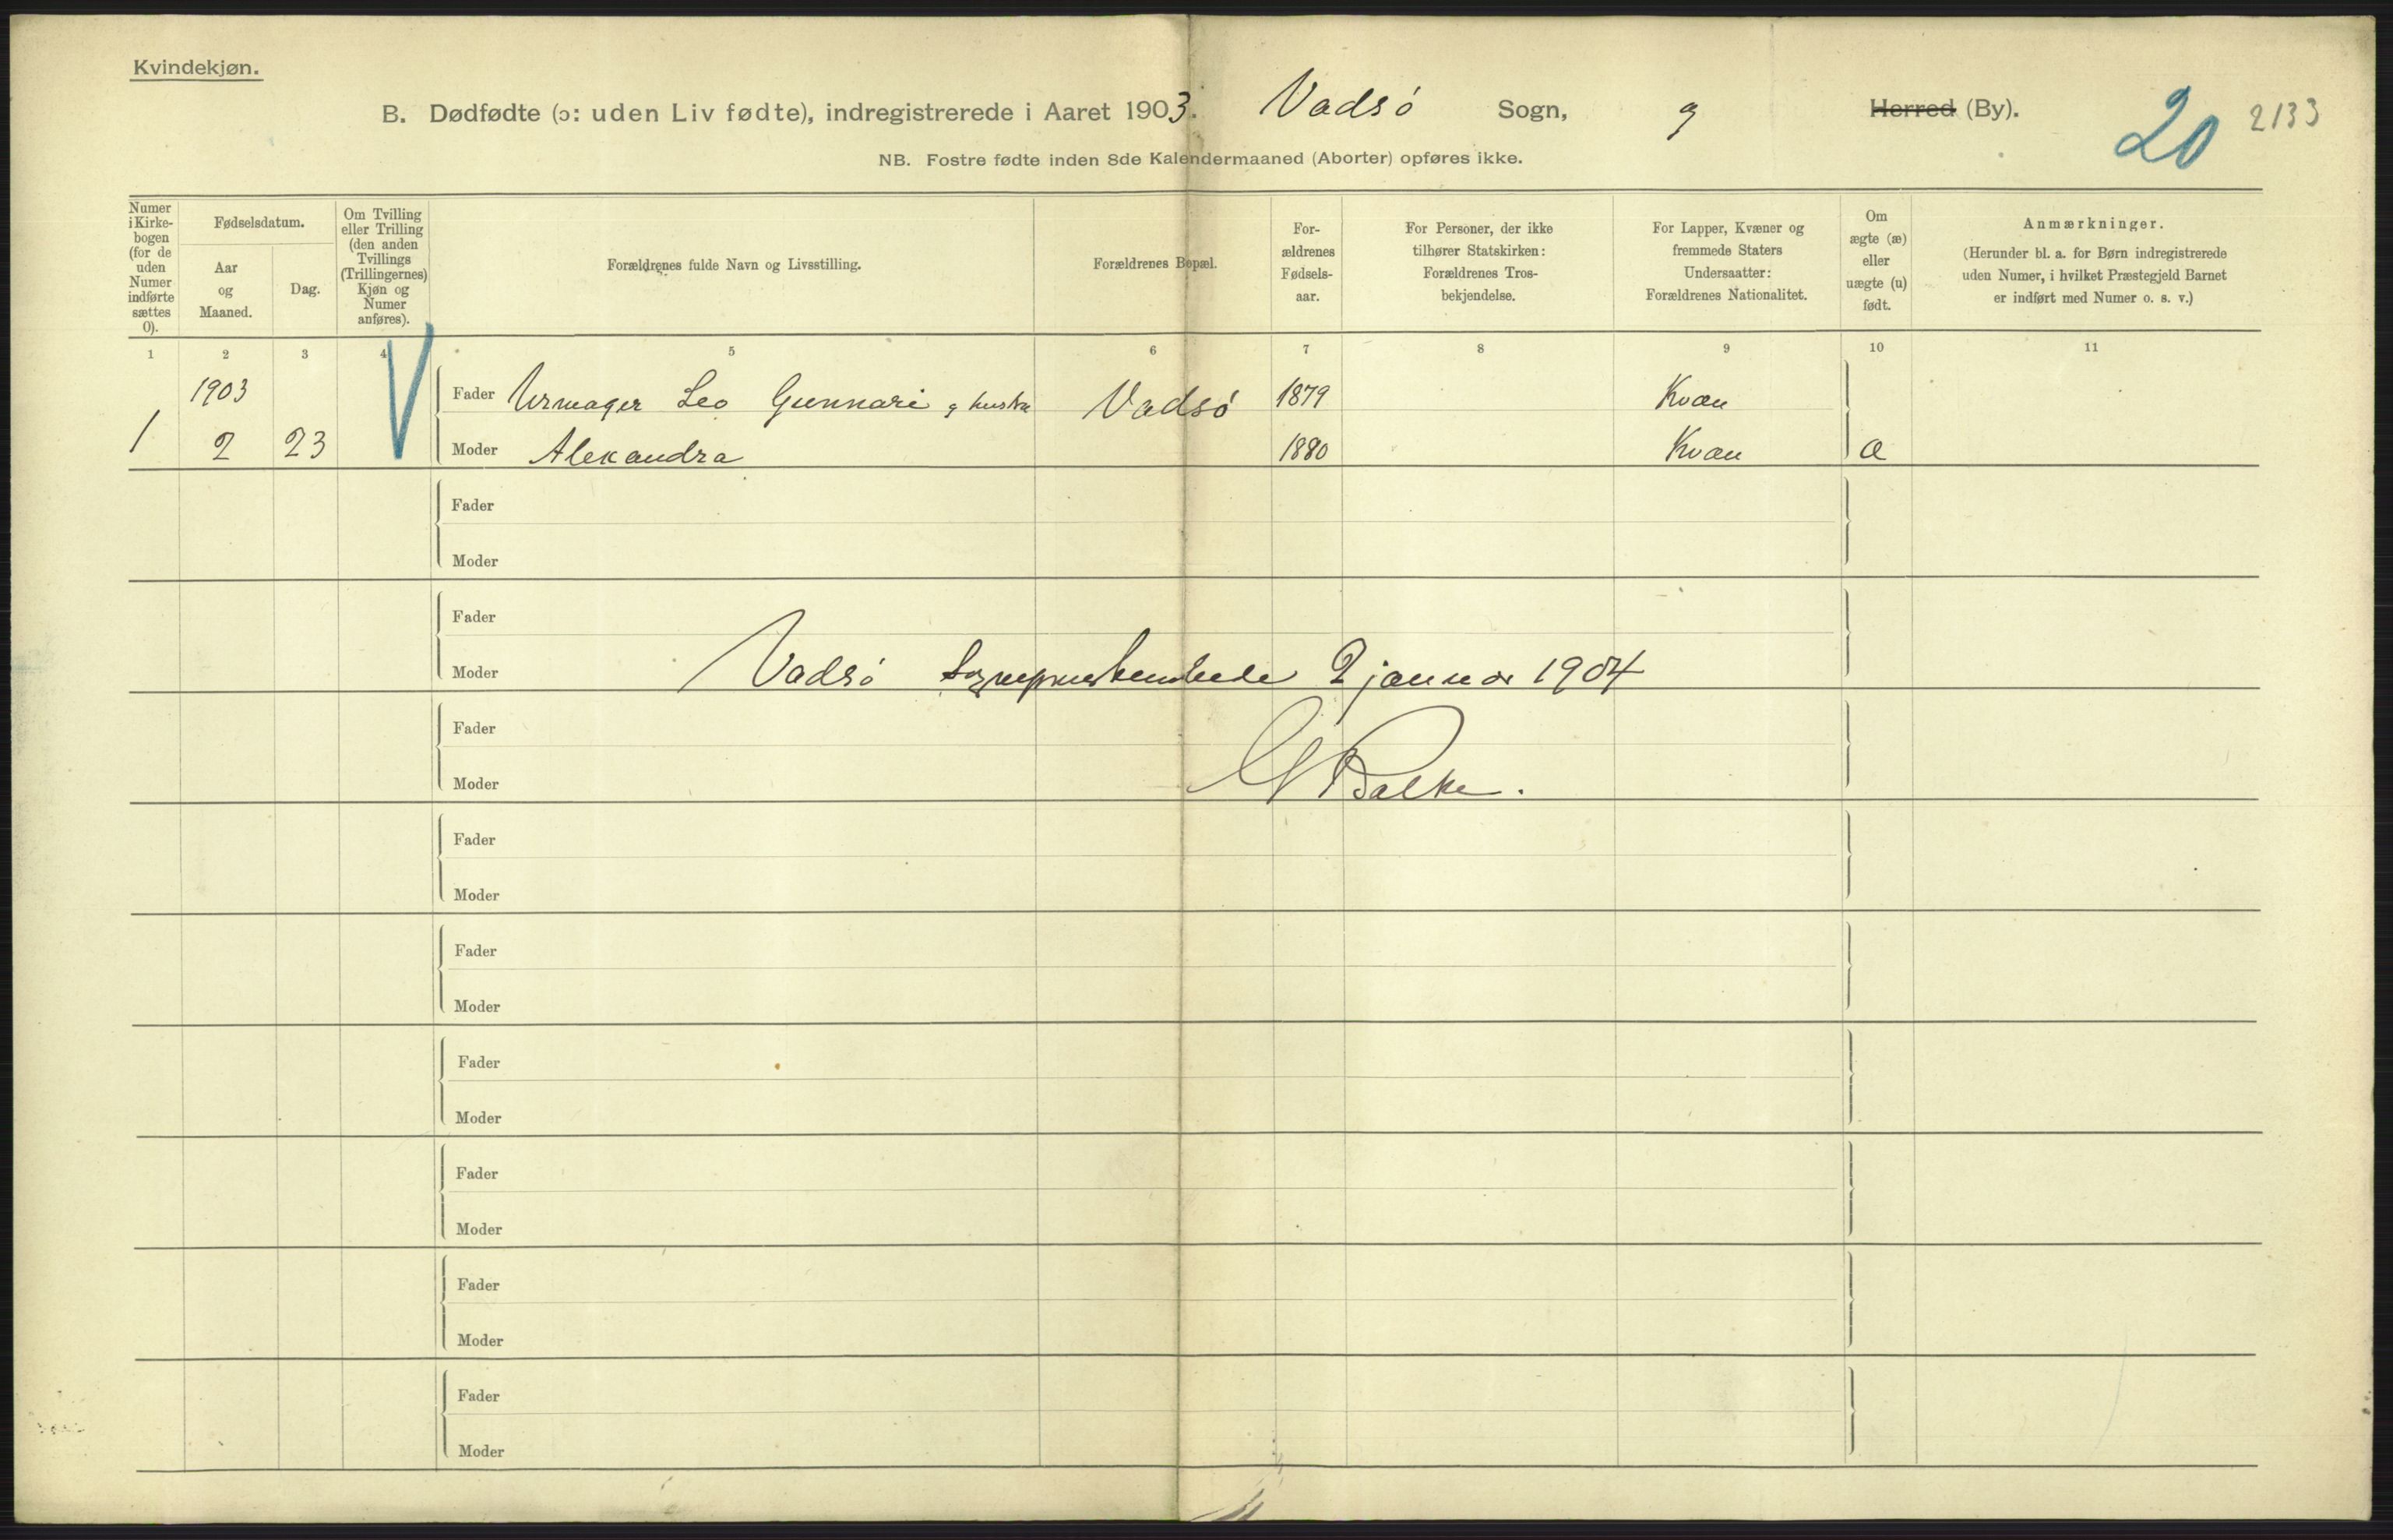 Kvindekjøn.
B. Dødfødte (ɔ: uden Liv fødte), indregistrerede i Aaret 1903. Vadsø Sogn, Herred (By).
20 2133
NB. Fostre fødte inden 8de Kalendermaaned (Aborter) opføres ikke.
Numer i Kirke-bogen (for de uden Numer indførte sættes 0).
Fødselsdatum.
Aar og Maaned.
Dag.
Om Tvilling eller Trilling (den anden Tvillings (Trillingernes) Kjøn og Numer anføres).
Forældrenes fulde Navn og Livsstilling.
Forældrenes Bopæl.
For-ældrenes Fødsels-aar.
For Personer, der ikke tilhører Statskirken: Forældrenes Tros-bekjendelse.
For Lapper, Kvæner og fremmede Staters Undersaatter: Forældrenes Nationalitet.
Om ægte (æ) eller uægte (u) født.
Anmærkninger.
(Herunder bl. a. for Børn indregistrerede uden Numer, i hvilket Præstegjeld Barnet er indført med Numer o. s. v.)
1 2 3 4 5 6 7 8 9 10 11
1903 Fader Urmager Leo Gunnari og hustru Vadsø 1879 Kvæn
1 2 23 Moder Alexandra 1880 Kvæn æ
Fader
Moder
Fader
Moder Vadsø Sogneprestembede 2 januar 1904
Fader
Moder G Balke.
Fader
Moder
Fader
Moder
Fader
Moder
Fader
Moder
Fader
Moder
Fader
Moder